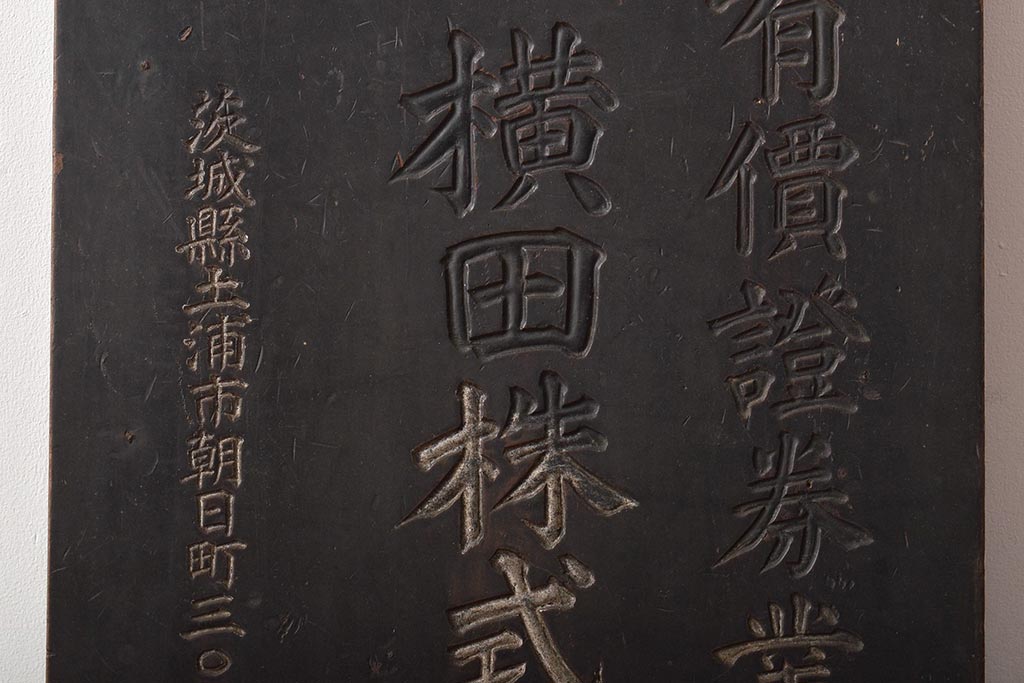 有價證券業
横田株式
茨城縣土浦市朝日町三〇